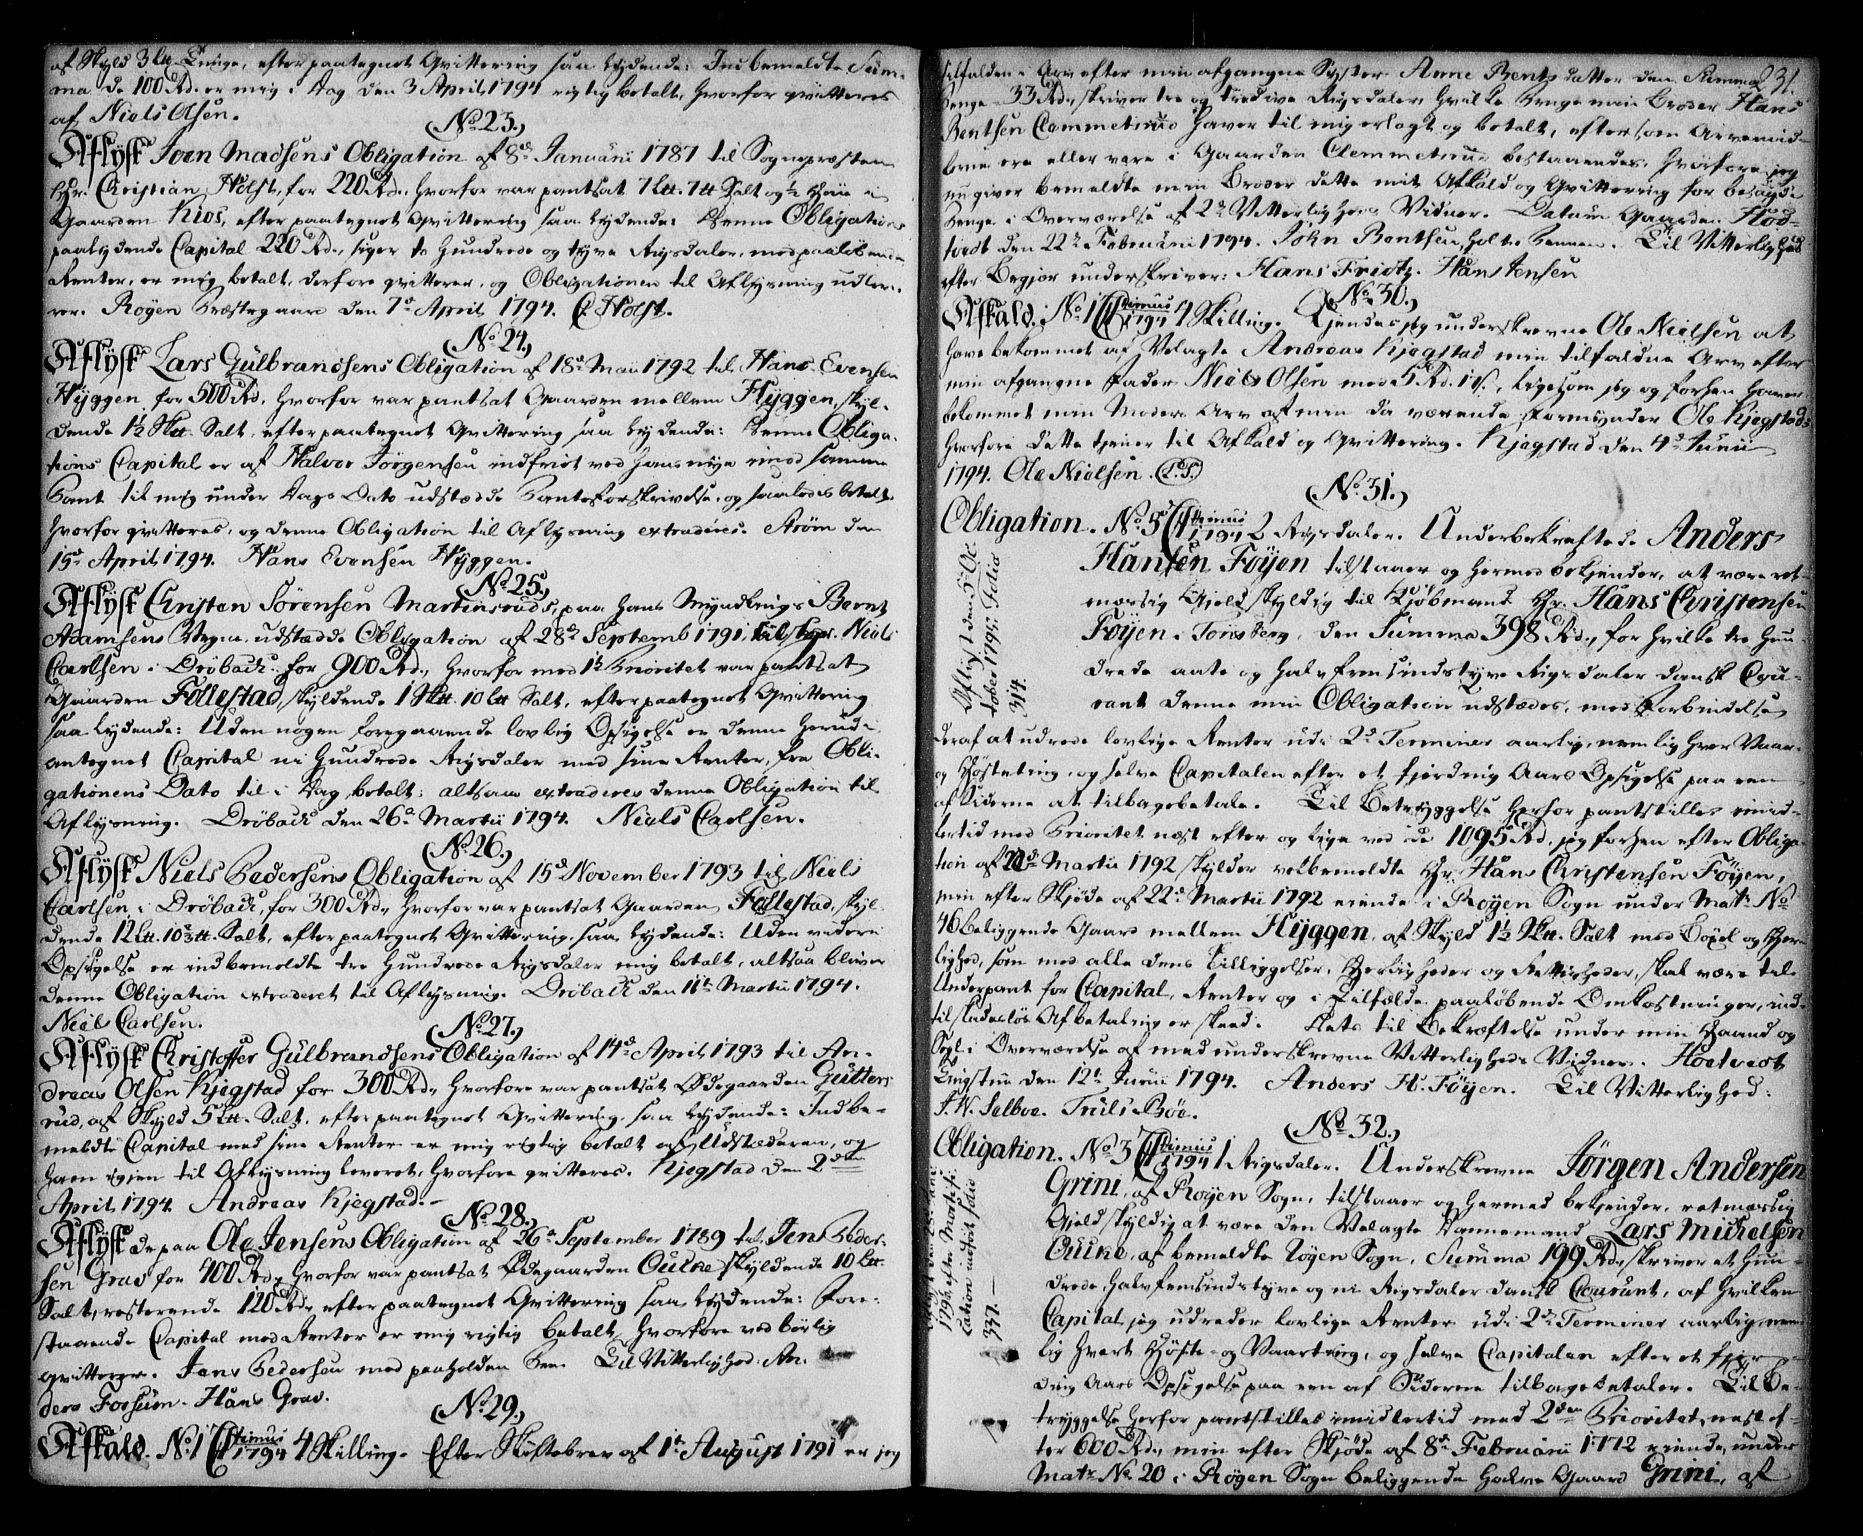 af Skyld 3 ℔ Tunge, efter paategnet Qvittering saa lydende: Indbemeldte Sum-
ma de 100 Rd. er mig i Dag den 3 April 1794 rigtig betalt, hvorfor qvitteres
af Niels Olsen.
No. 23.
Aflyst Joen Madsens Obligation af 8de Januarii 1787 til Sognepræsten
Hr. Christian Holst, for 220 Rd., hvorfor var pantsat 7 Ltt. 7 tt Salt og ½ Huud i
Gaarden Kios, efter paategnet Qvittering saa lydende: Denne Obligations
paalydende Capital 220 Rd., siger to Hundrede og tyve Rigsdaler, med paaløbende
Renter, er mig betalt, derfore qvitterer, og Obligationen til Aflysning udleve-
rer. Røgen Præstegaard den 7de April 1794. C. Holst.
No. 24.
Aflyst Lars Gulbrandsens Obligation af 18de Maii 1792 til Hans Evensen
Hyggen for 500 Rd., hvorfor var pantsat Gaarden mellem Hyggen, skyl-
dende 1½ Sktt. Salt, efter paategnet Qvittering saa lydende: Denne Obliga-
tions Capital er af Halvor Jørgensen indfriet ved hans nye imod samme
Pant til mig under Dags Dato udstædde Panteforskrivelse, og saaledes betalt,
hvorfor qvitteres, og denne Obligation til Aflysning extraderes. Strøm den
15de April 1794. Hans Evensen Hyggen.
No. 25.
Aflyst Christen Sørensen Martinsruds, paa hans Myndlings Bernt
Adamsens Vegne, udstædde Obligation af 28de Septemb. 1791, til Hr. Niels
Carlsen i Drøbach for 900 Rd., hvorfor med 1te Prioritet var pantsat
Gaarden Follestad, skyldende 1 Sktt. 10 Ltt Salt, efter paategnet Qvittering
saa lydende: Uden nogen foregaaende lovlig Opsigelse er denne herudi
antegnet Capital ni Hundrede Rigsdaler med sine Renter, fra Obli-
gationens Dato til i Dag, betalt; altsaa extraderes denne Obligation til
Aflysning. Drøbach den 26de Martii 1794. Niels Carlsen.
No. 26.
Aflyst Niels Pedersens Obligation af 15de November 1793 til Niels
Carlsen i Drøbach, for 300 Rd., hvorfor var pantsat Gaarden Follestad, skyl-
dende 12 Ltt. 10⅔ tt. Salt, efter paategnet Qvittering, saa lydende: Uden videre
Opsigelse er indbemeldte tre Hundrede Rigsdaler mig betalt, altsaa bliver
denne Obligation extraderet til Aflysning. Drøbach den 11te Martii 1794.
Niels Carlsen.
No. 27.
Aflyst Christoffer Gulbrandsens Obligation af 14de April 1793 til An-
dreas Olsen Kjegstad for 300 Rd., hvorfore var pantsat Ødegaarden Gutters-
rud, af Skyld 5 Ltt. Salt, efter paategnet Qvittering, saa lydende: Indbe-
meldte Capital med sine Renter er mig rigtig betalt af Udstæderen, og
ham igien til Aflysning leveret, hvorfore qvitteres. Kjegstad den 2den
April 1794. Andreas Kjegstad.
No. 28.
Aflyst de paa Ole Jensens Obligation af 26de September 1789 til Jens Peder-
sen Grav for 400 Rd., hvorfor var pantsat Ødegaarden Ouwe skyldende 10 Ltt.
Salt, resterende 120 Rd., efter paategnet Qvittering saa lydende: Fore-
staaende Capital med Renter er mig rigtig betalt, hvorfore ved børlig
qvitterer. Jens Pedersen med paaholden Pen. Til Vitterlighed: An-
ders Forsum. Hans Grav.
No. 29.
Afkald. No. 1 Primus 1794 4 Skilling. Efter Skiftebrev af 1te August 1791 er jeg
231.
tilfalden i Arv efter min afgangne Syster Anne Bents datter den Summa
Penge 33 Rd., skriver tre og tredive Rigsdaler, hvilke Penge min Broder Hans
Bentsen Clemmetsrud haver til mig erlagt og betalt, eftersom Arvemid-
lerne ere eller vare i Gaarden Clemmetsrud bestaaende. Hvorfore jeg
nu giver bemeldte min Broder dette mit Afkald og Qvittering for besagde
Penge i Overværelse af 2de Vitterligheds Vidner. Datum Gaarden Hod-
tvedt den 22de Februarii 1794. John Bentsen, holte Pennen. Til Vitterlighed
efter Begjær underskriver: Hans Friis. Hans Jensen
No. 30.
Afkald. No. 1 Primus 1794 4 Skilling. Kjendes jeg underskrevne Ole Nielsen at
have bekommet af Velagte Andreas Kjegstad min tilfaldne Arv efter
min afgangne Fader Niels Olsen med 5 Rd. 1 s., ligesom jeg og forhen haver
bekommet min Moders Arv af min da værende Formynder Ole Kjegstad;
hvorfore dette tjener til Afkald og Qvittering. Kjegstad den 4de Junii
1794. Ole Nielsen. (L. S.)
No. 31.
Obligation. No. 5 Primus 1794 2 Rigsdaler. Underbekræftede Anders
Hansen Føyen tilstaaer og hermed bekjender, at være ret-
mæssig Gjeld skyldig til Kjøbmand Hr. Hans Christensen
Føyen i Tønsberg, den Summa 398 Rd., for hvilke tre Hun-
drede aate og halvfemsindstyve Rigsdaler dansk Cou-
rant denne min Obligation udstædes, med Forbindelse
Aflyst den 5 Oc-
tober 1795. Folio
314.
deraf at udrede lovlige Renter udi 2de Terminer aarlig, nemlig hver Vaar-
og Høsteting, og selve Capitalen efter et fjerding Aars Opsigelse paa een
af Siderne at tilbagebetale. Til Betryggelse herfor pantstilles imid-
lertid med Prioritet næst efter og lige ved de 1095 Rd., jeg forhen efter Obliga-
tion af 22de Martii 1792 skylder velbemeldte Hr. Hans Christensen Føyen,
min efter Skjøde af 22de Martii 1792 eiende i Røyen Sogn under Matr. No
46 beliggende Gaard mellem Hyggen, af Skyld 1½ Sktt. Salt med Bøxel og Her-
lighed, som med alle dens Tilliggelser, Herligheder og Rettigheder, skal være til
Underpant for Capital, Renter og i Tilfælde paaløbende Omkostninger, ind-
til skadesløs Afbetaling er skeed. Dets til Bekræftelse under min Haand og
Segl i Overværelse af med underskrevne Vitterligheds Vidner. Hoetvedt
Tingstue den 12te Junii 1794. Anders H. Føyen. Til Vitterlighed:
J. W. Selboe. Truls Bøe.
No. 32.
Obligation. No. 3 Primus 1794 1 Rigsdaler. Underskrevne Jørgen Andersen
Grini, af Røyen Sogn, tilstaaer og hermed bekjender, retmæssig
Gjeld skyldig at være den Velagte Dannemand Lars Michelsen
Ouwe, af bemeldte Røyen Sogn, Summa 199 Rd., skriver et Hun-
drede, halvfemsindstyve og ni Rigsdaler dansk Courant, af hvilken
Capital jeg udreder lovlige Renter udi 2de Terminer aarlig, nem-
lig hvert Høste- og Vaarting, og selve Capitalen efter et fjer-
ding Aars Opsigelse paa een af Siderne tilbagebetaler. Til Be-
tryggelse herfor pantstilles imidlertid med 2den Prioritet, næst ef-
ter 600 Rd., min efter Skjøde af 8de Februarii 1772 eiende, under
Matr. No. 20 i Røgen Sogn beliggende halve Gaard Grini, af
1796 efter Mortifi-
cation indført folio
337.